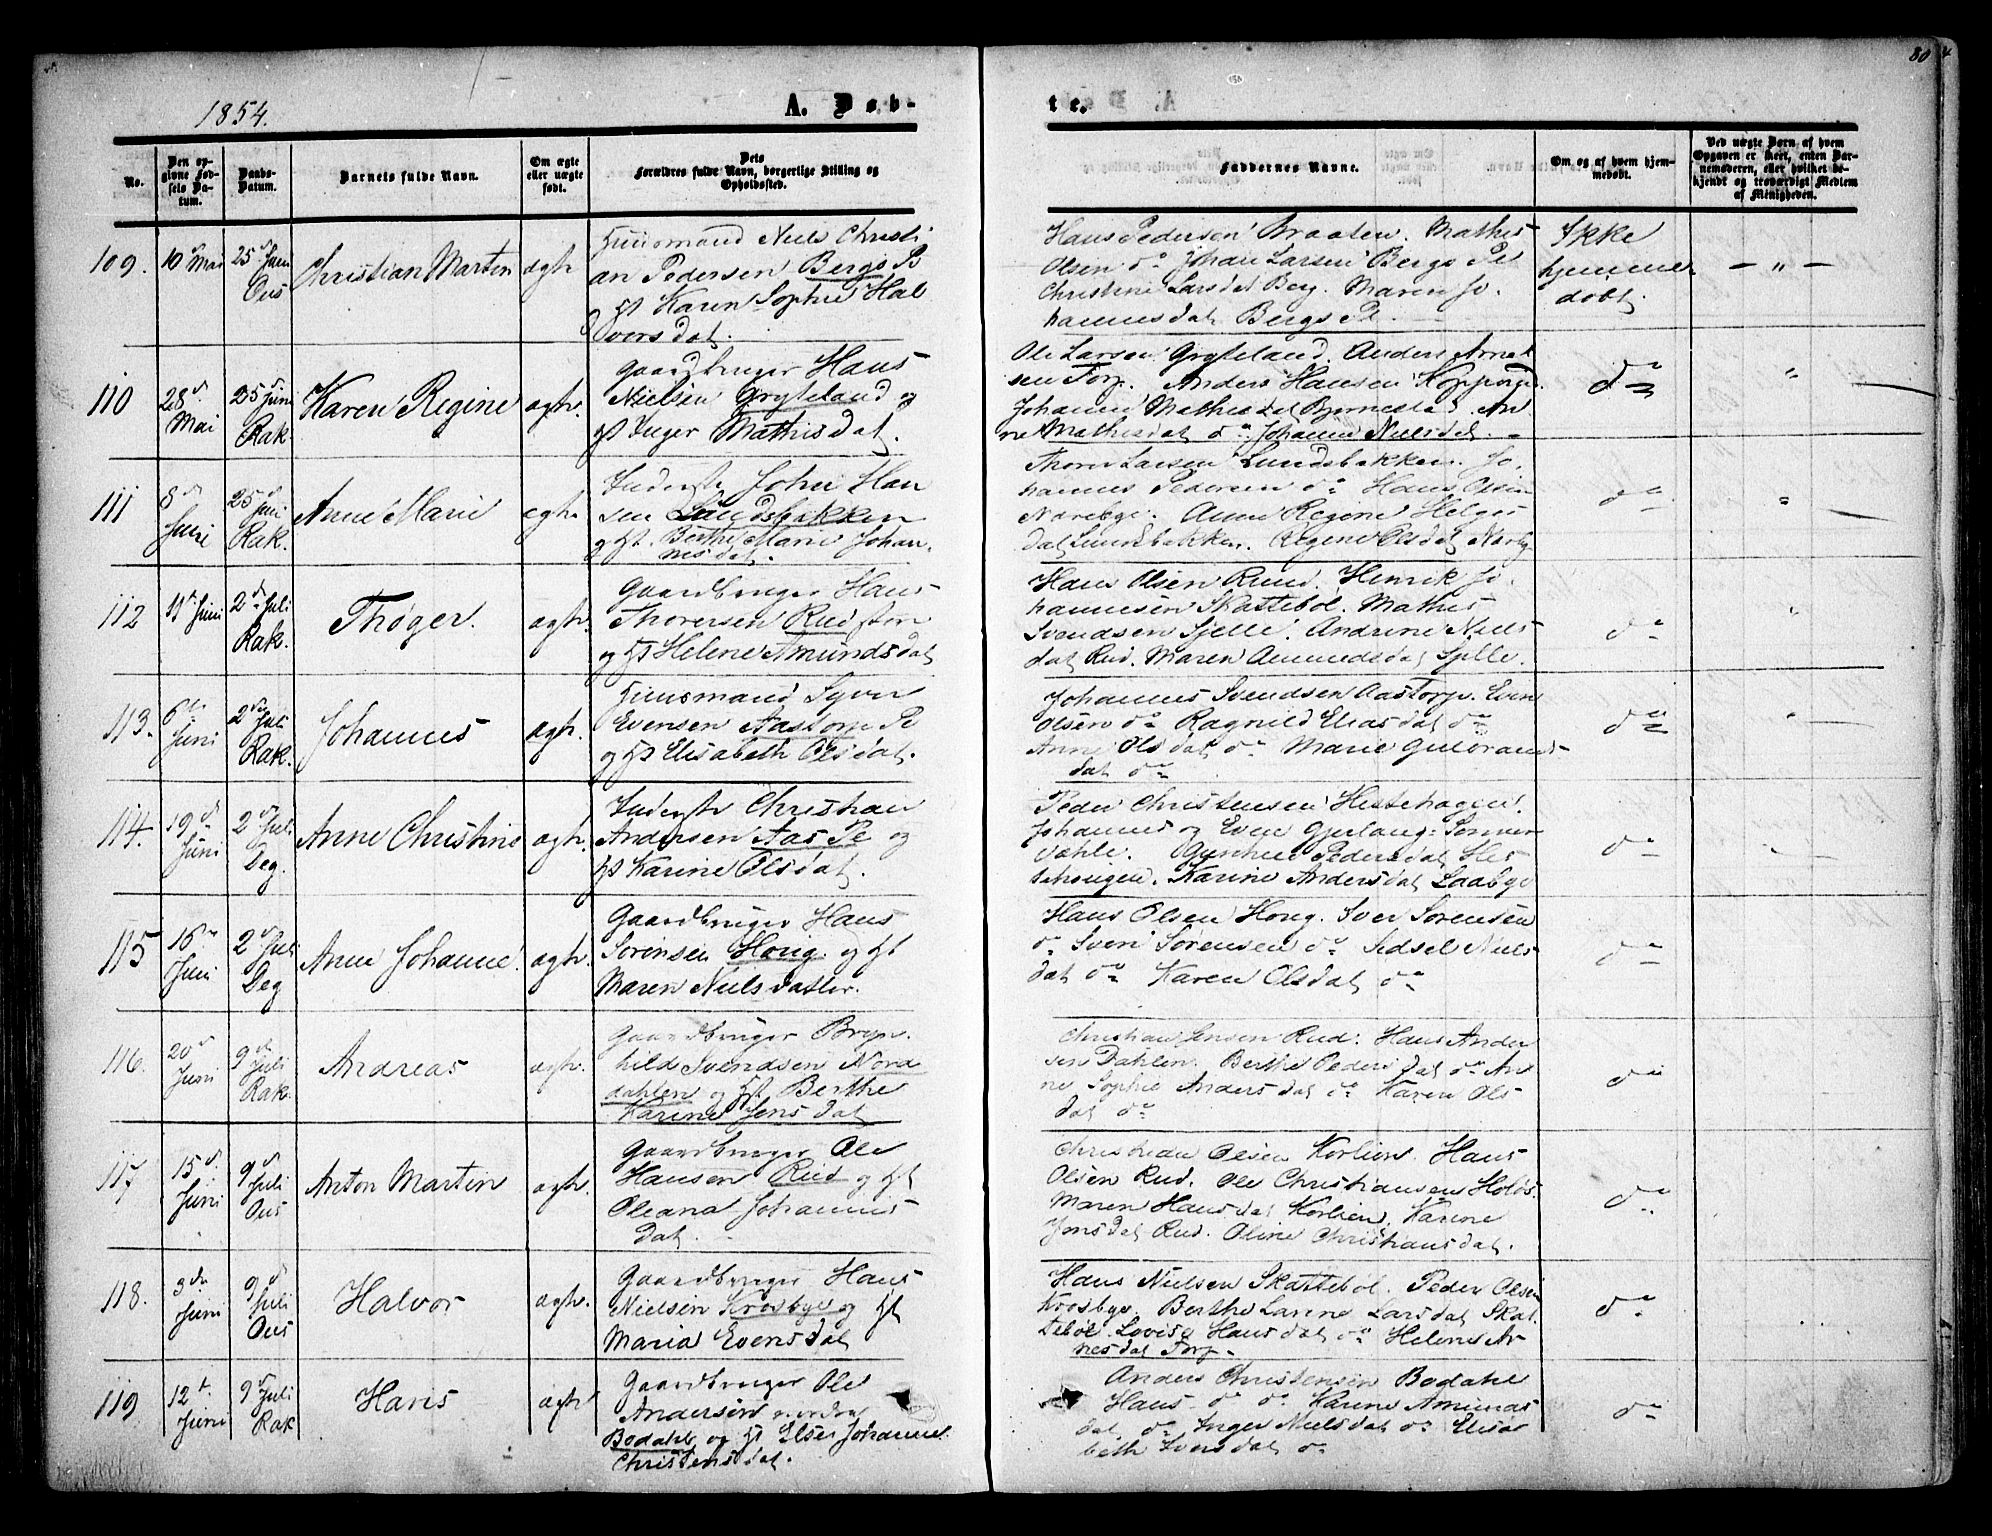 80
1854.
A. Døb-
te.
No.
Den op-
givne Fød-
sels Da-
tum.
Daabs-
Datum.
Barnets fulde Navn.
Om ægte
eller uægte
født.
Dets
Forældres fulde Navn, borgerlige Stilling og
Opholdssted.
Faddernes Navne.
Om og af hvem hjem-
medøbt.
Ved uægte Børn af hvem
Opgaven er skeet, enten Bar-
nemoderen, eller hvilket be-
kjendt og troværdigt Medlem
af Menigheden.
109.
10 Mai
25 Juni
Ous
Christian Martin
ægte
Huusmand Niels Christi
an Pedersen Bergs Pe
og Ht Karen Sophie Hal
vorsdat.
Hans Pedersen Braaten. Mathis
Olsen do Johan Larsen Bergs Pe
Christine Larsdat Berg. Maren Jo.
hannesdat Bergs Pe.
Ikke
hjemme
døbt.
— " —
110
28d
Mai
25d Juni
Rak.
Karen Regine
ægte.
Gaardbruger Hans
Nielsen Gryteland og
Ht Inger Mathisdat.
Ole Larsen Gryteland. Anders Arnt
sen Torp. Anders Hansen Koppang
Johanne Mathisdat Bjørnestad. An
ne Mathisdat do Johanne Nielsdat.
do
"
111
8de
Juni
25d
Juni
Rak.
Anne Marie
ægte.
Inderste John Han
sen Lundsbakken
og Ht. Berthe Marie Johan.
nesdat.
Thorer Larsen Lundsbakken. Jo.
hannes Pedersen do Hans Olsen
Narebye. Anne Regine Helges
dat Lundsbakken. Regine Olsdat Narby
do
"
112
11te Juni
2den Juli
Rak.
Thøger.
ægte.
Gaardbruger Hans
Thorersen Rud store
og Ht Helene Amundsdat
Hans Olsen Ruud. Henrik Jo.
hannesen Skattebøl. Mathis
Svendsen Sjelle. Andrine Niels
dat Rud. Maren Ammundsdat Sjelle.
do
"
113.
6te
Juni
2den
Juli
Rak.
Johannes
ægte.
Huusmand Syver
Evensen Aastorp Pe
og Ht Elisabeth Olsdat.
Johannes Svendsen Aastorp. Even
Olsen do Ragnild Eliasdat do
Anne Olsdat do Marie Gulbrands-
dat do
do
"
114.
19de
Juni
2d Juli
Deg.
Anne Christine
ægte.
Inderste Christian
Andersen Aas Pe og
Ht Karine Olsdat.
Peder Christensen Hestehagen.
Johannes og Even Gjerlaug: Sønner
Dahle. Gunhild Pedersdat Hes
tehougen. Karine Andersdat Laabye
do
"
115
16de
Juni
2d Juli
Deg
Anne Johanne
ægte.
Gaardbruger Hans
Sørensen Houg. og Ht
Maren Nielsdatter.
Hans Olsen Houg. Iver Sørensen
do Sven Sørensen do Sidsel Niels
dat do Karen Olsdat do
do
116.
20d
Juni
9d
Juli
Rak.
Andreas
ægte.
Gaardbruger Bryn.
hild Svendsen Nord
dahlen og Ht Berthe
Karine Jensdat
Christian Jensen Rud. Hans Ander
sen Dahlen. Berthe Pedersdat do An
ne Sophie Andersdat do Karen Ols
dat do
do
117.
15d
Juni
9d
Juli
Ous
Anton Martin
ægte.
Gaardbruger Ole
Hansen Rud og Ht
Oleana Johannes
dat.
Christian Olsen Korlien. Hans
Olsen Rud. Ole Christiansen Holøs
Maren Hansdat Korlien, Karine
Jensdat Rud. Oline Christiansdat.
do
118.
3die
Juni
9d
Juli
Ous
Halvor
ægte.
Gaardbruger Hans
Nielsen Krosbye og Ht
Maria Evensdat
Hans Nielsen Skattebøl. Peder Olsen
Krosbye. Berthe Larine Larsdat Skat.
tebøl. Lovise Hansdat do Helene Ar
nesdat Torp.
do
119
12t
Juni
9d Juli
Rak
Hans
ægte
Gaardbruger Ole
Andersen nordre
Bodahl og Ht Elsen Johanne
Christensdat.
Anders Christensen Bodahl
Hans do do Karine Amunds
dat. do Inger Nielsdat do Elisa
beth Iversdat do
do